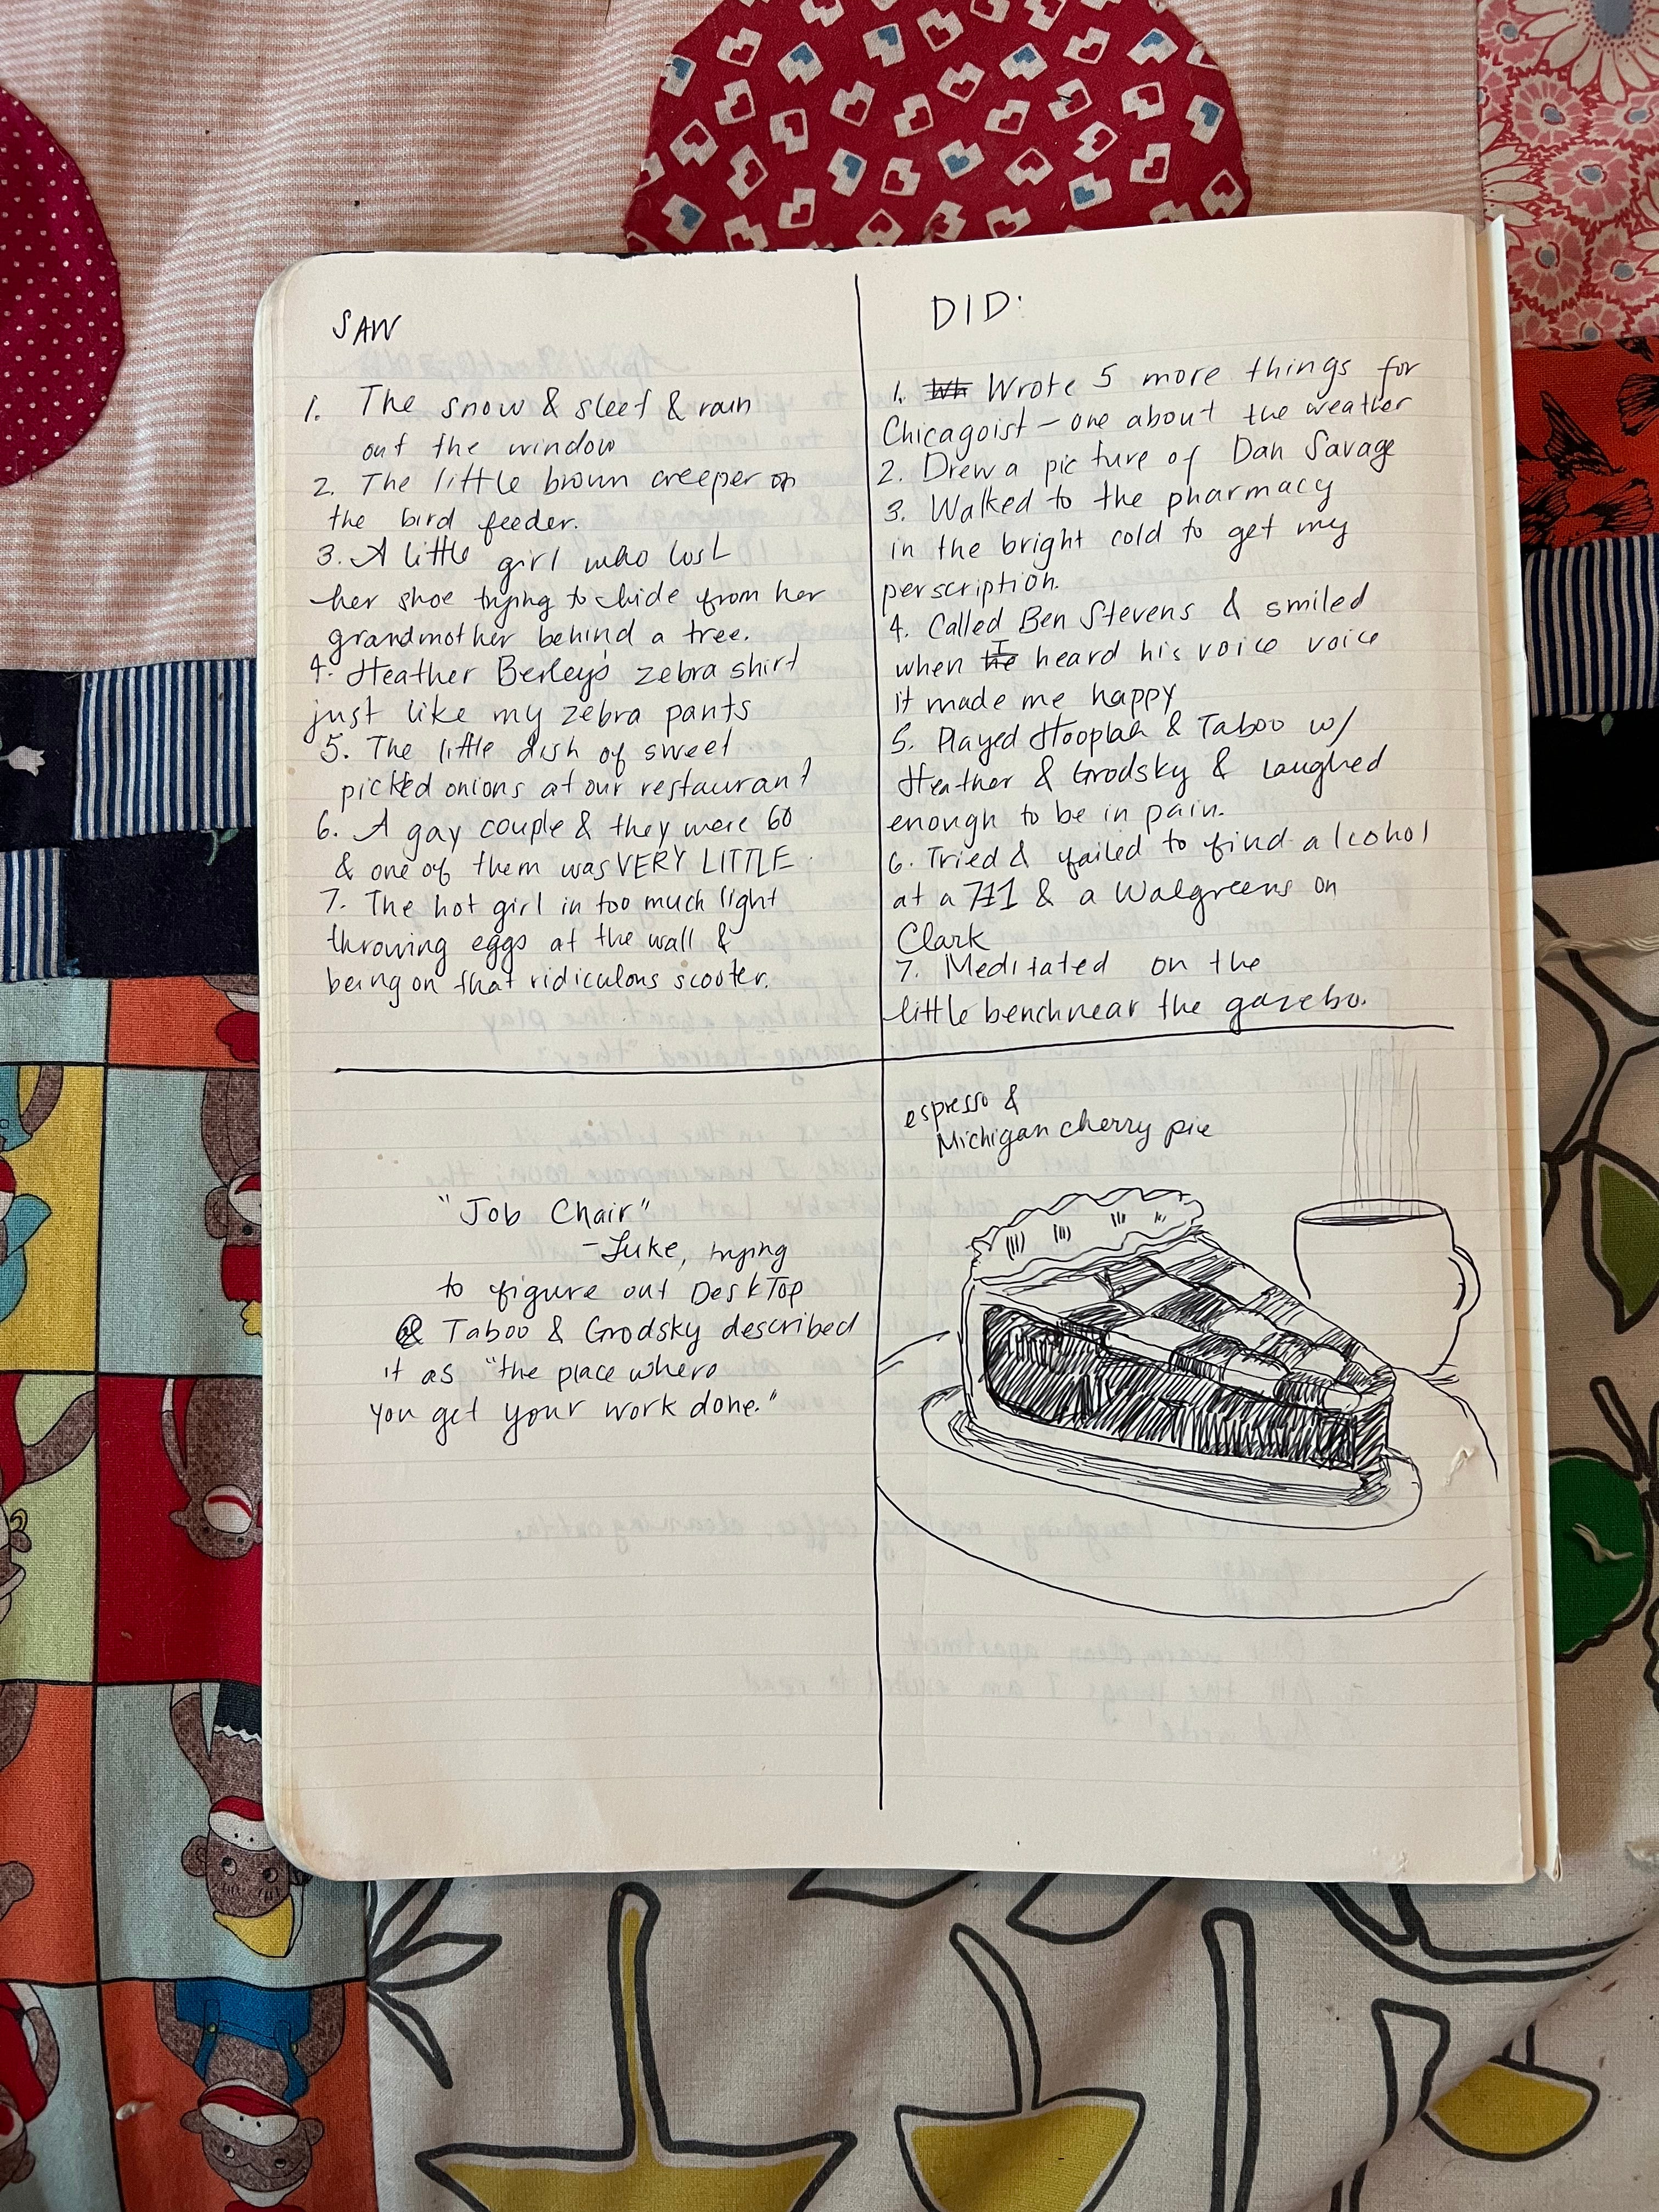 SAW
1. The snow & sleet & rain
out the window
2. The little brown creeper on
the bird feeder.
3. A little girl who lost
her shoe trying to hide from her
grandmother behind a tree.
4. Heather Berley's zebra shirt
just like my zebra pants
5. The little dish of sweet
pickled onions at our restaurant
6. A gay couple & they were 60
& one of them was VERY LITTLE.
7. The hot girl in too much light
throwing eggs at the wall &
being on that ridiculous scooter.
DID:
1. Wh Wrote 5 more things for
Chicagoist - one about the weather
2. Drew a picture of Dan Savage
3. Walked to the pharmacy
in the bright cold to get my
perscription.
4. Called Ben Stevens & smiled
when I heard his voice voice
it made me happy
5. Played Hooplah & Taboo w/
Heather & Grodsky & laughed
enough to be in pain.
6. Tried & failed to find alcohol
at a 711 & a Walgreens on
Clark
7. Meditated on the
little bench near the gazebo.
"Job Chair"
- Luke, trying
to figure out DeskTop
@ Taboo & Grodsky described
it as "the place where
you get your work done."
espresso &
Michigan cherry pie